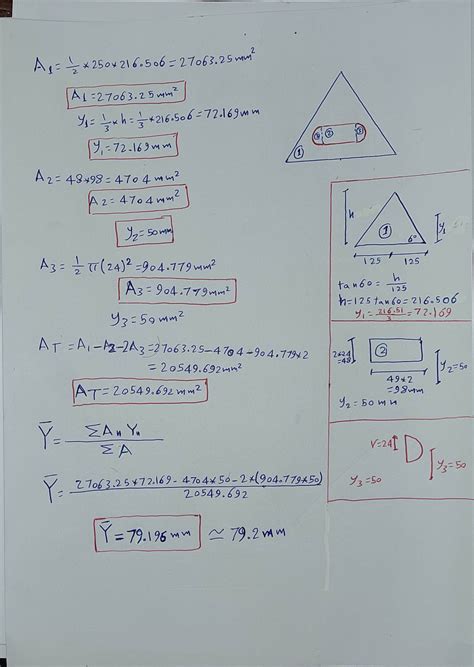 A₁ = 1/2 * 250 * 216.506 = 27063.25 mm²
A₁ = 27063.25 mm²
y₁ = 1/3 * h = 1/3 * 216.506 = 72.169 mm
y₁ = 72.169 mm
A₂ = 48*98 = 4704 mm²
A₂ = 4704 mm²
y₂ = 50mm
A₃ = 1/2 π(24)² = 904.779 mm²
A₃ = 904.779 mm²
y₃ = 50 mm²
A_T = A₁ - A₂ - 2A₃ = 27063.25 - 4704 - 904.779*2
= 20549.692 mm²
A_T = 20549.692 mm²
Ȳ = ΣAₙ Yₙ / ΣA
Ȳ = 27063.25*72.169 - 4704*50 - 2*(904.779*50) / 20549.692
Ȳ = 79.196 mm ≃ 79.2 mm
①
②
h
①
y₁
125
125
tan60 = h/125
h = 125 tan60 = 216.506
y₁ = 216.51/3 = 72.169
2*24
=48
②
y₂=50
49*2
=98mm
y₂ = 50 mm
r=24
y₃=50
y₃=50